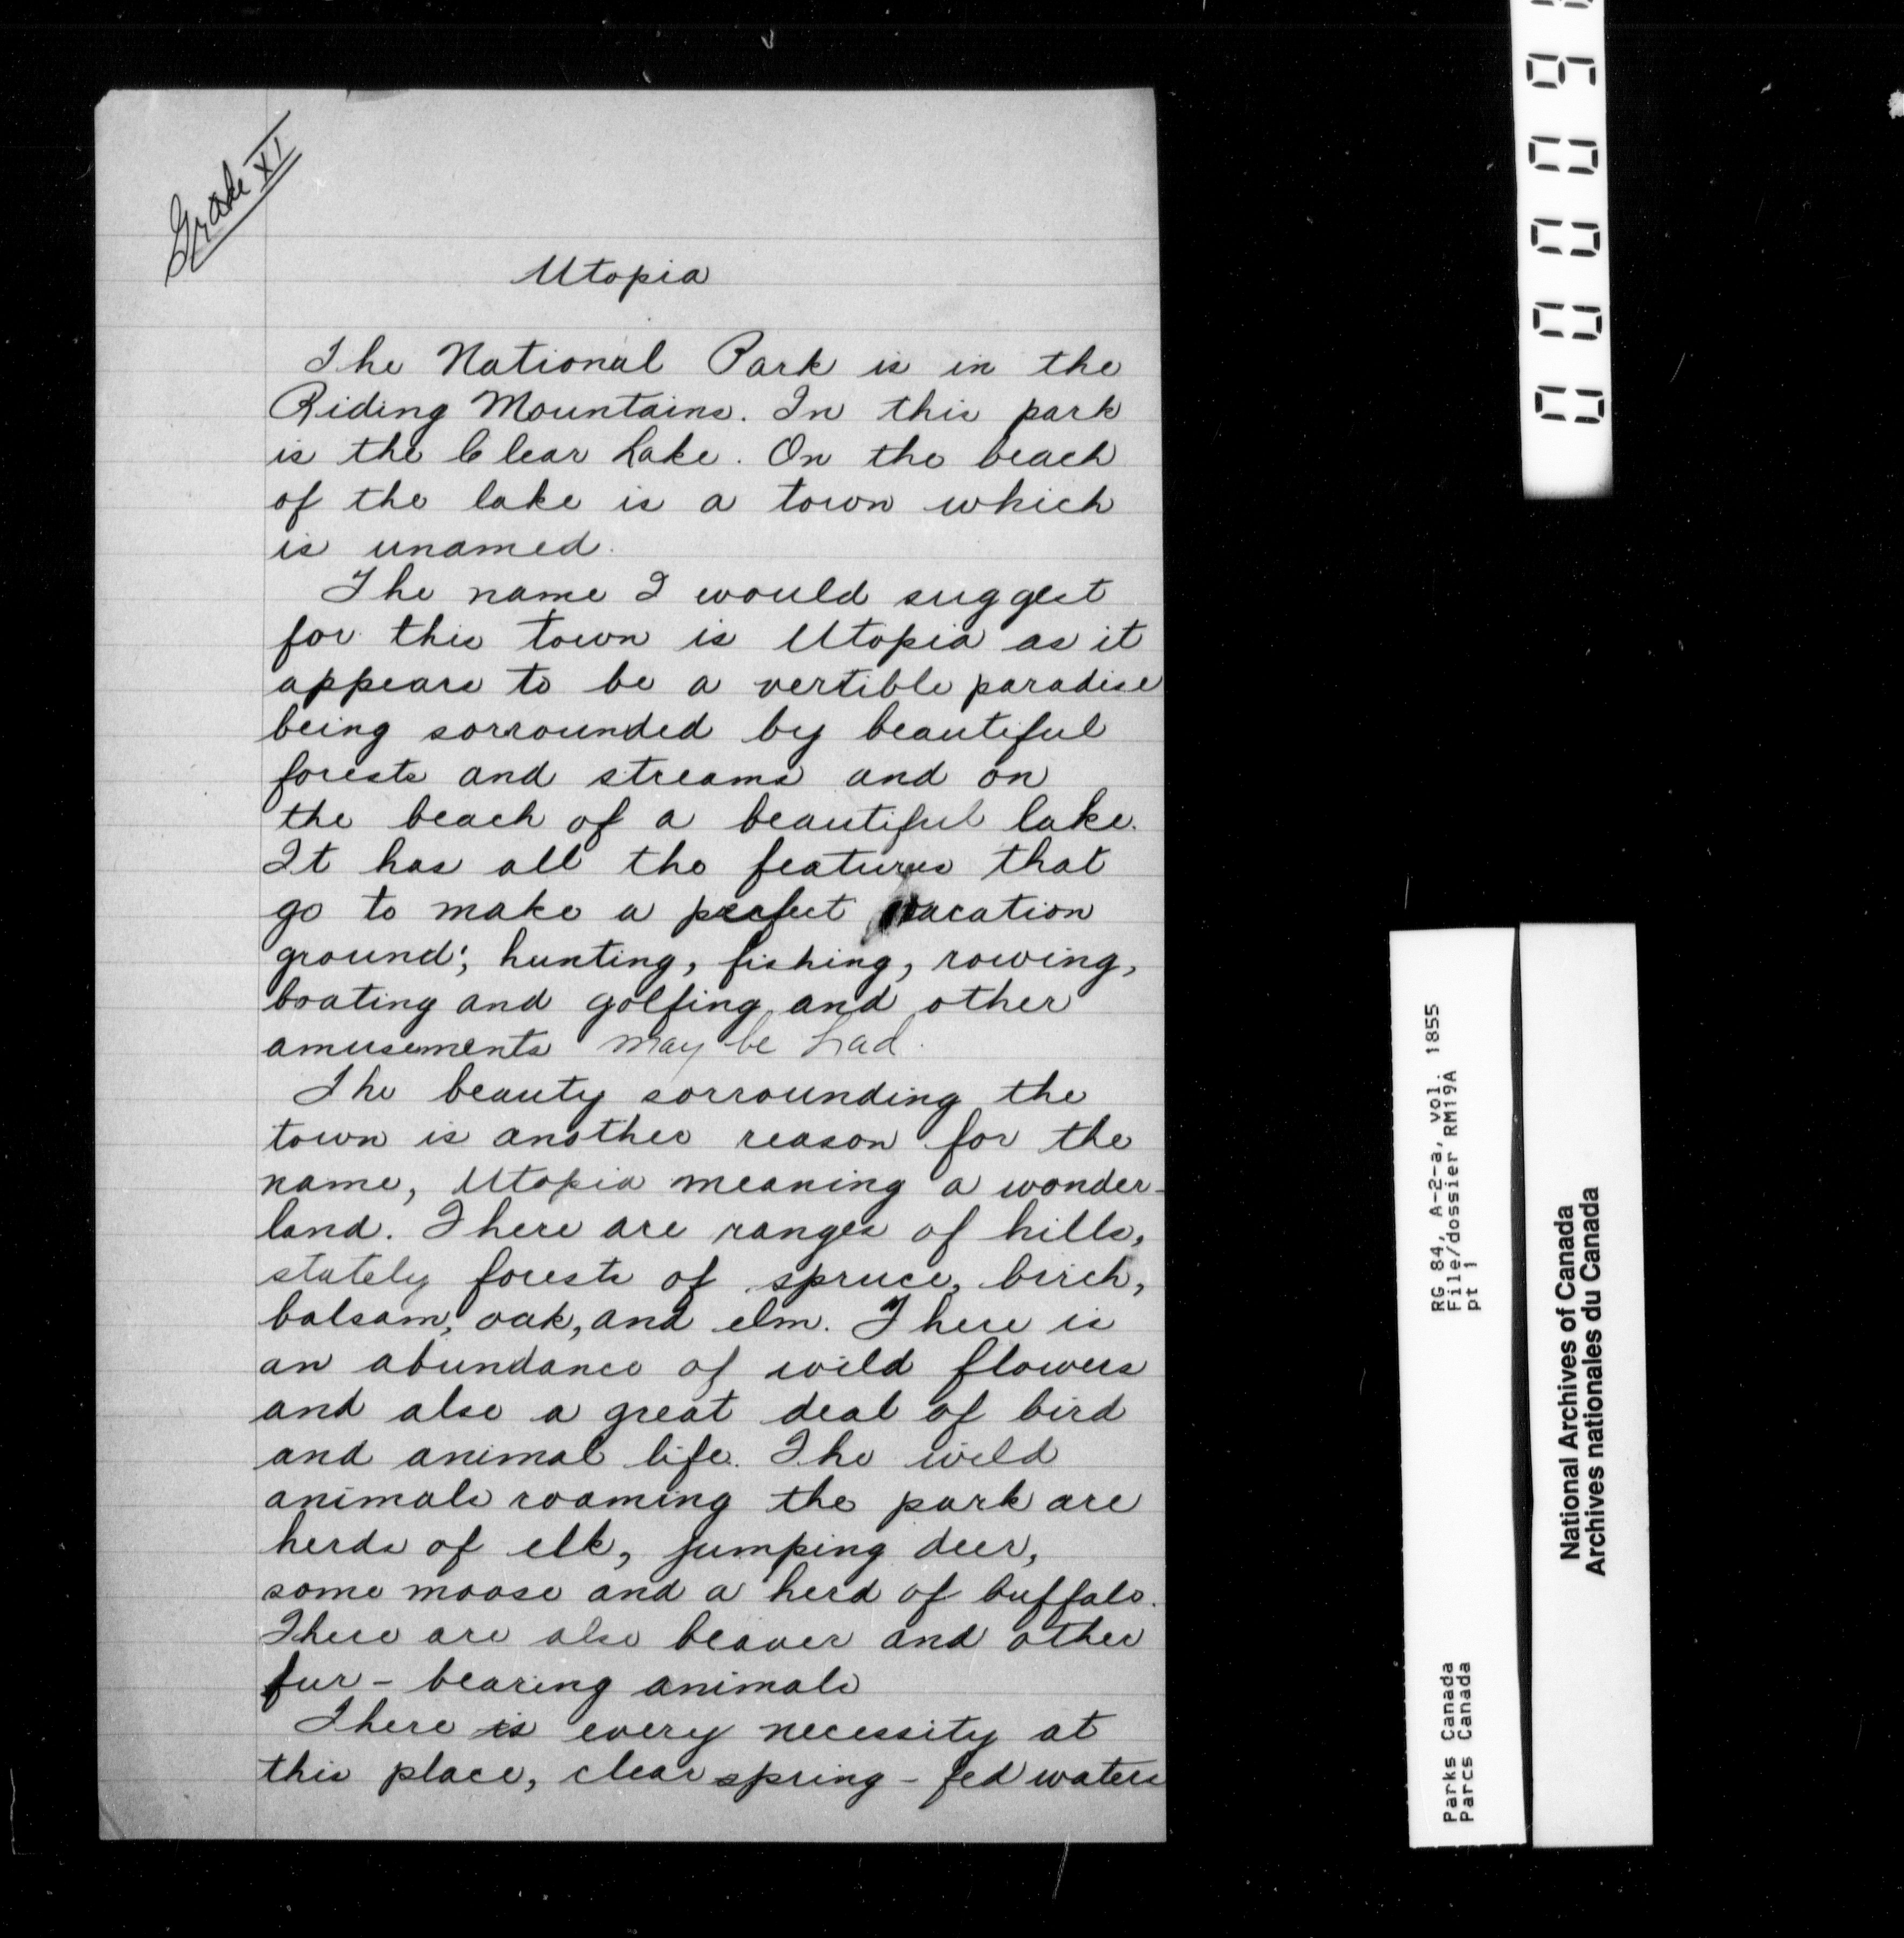 Grade XI
Utopia
The National Park is in the
Riding Mountains. In this park
is the Clear Lake. On the beach
of the lake is a town which
is unamed.
The name I would suggest
for this town is Utopia as it
appears to be a vertible paradise
being sorrounded by beautiful
forests and streams and on
the beach of a beautiful lake.
It has all the features that
go to make a perfect vacation
ground; hunting, fishing, rowing,
boating and golfing and other
amusements may be had.
The beauty sorrounding the
town is another reason for the
name, Utopia meaning a wonder-
land. There are ranges of hills,
stately forests of spruce, birch,
balsam, oak, and elm. There is
an abundance of wild flowers
and also a great deal of bird
and animal life. The wild
animals roaming the park are
herds of elk, jumping deer,
some moose and a herd of buffalo.
There are also beaver and other
fur-bearing animals
There is every necessity at
this place, clear spring-fed waters
RG 84, A-2-a, vol. 1855
File/dossier RM19A
pt 1
Parks Canada
Parcs Canada
National Archives of Canada
Archives nationales du Canada